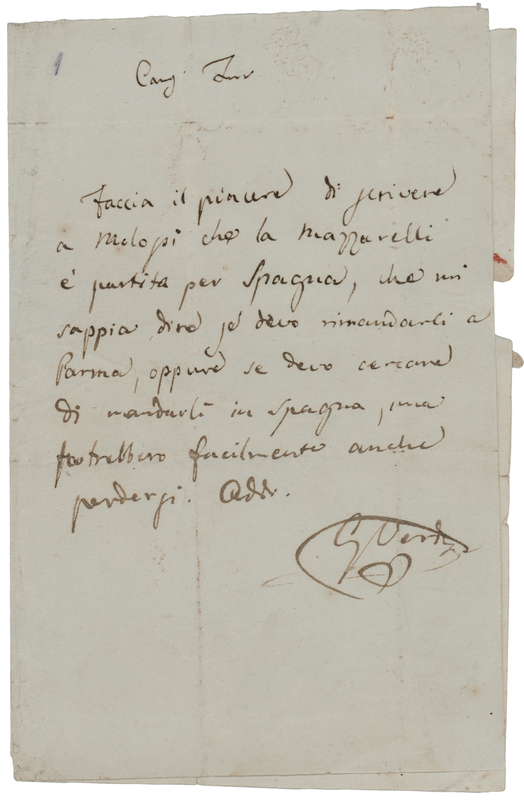 1
Carg.
Faccia il piacere di scrivere
a Molossi che la Mazzarelli
è partita per Spagna, che mi
sappia dire se devo rimandarli a
Parma, oppure se devo cercare
di mandarli in Spagna, ma
potrebbero facilmente anche
perdersi. Addi.
G Verdi